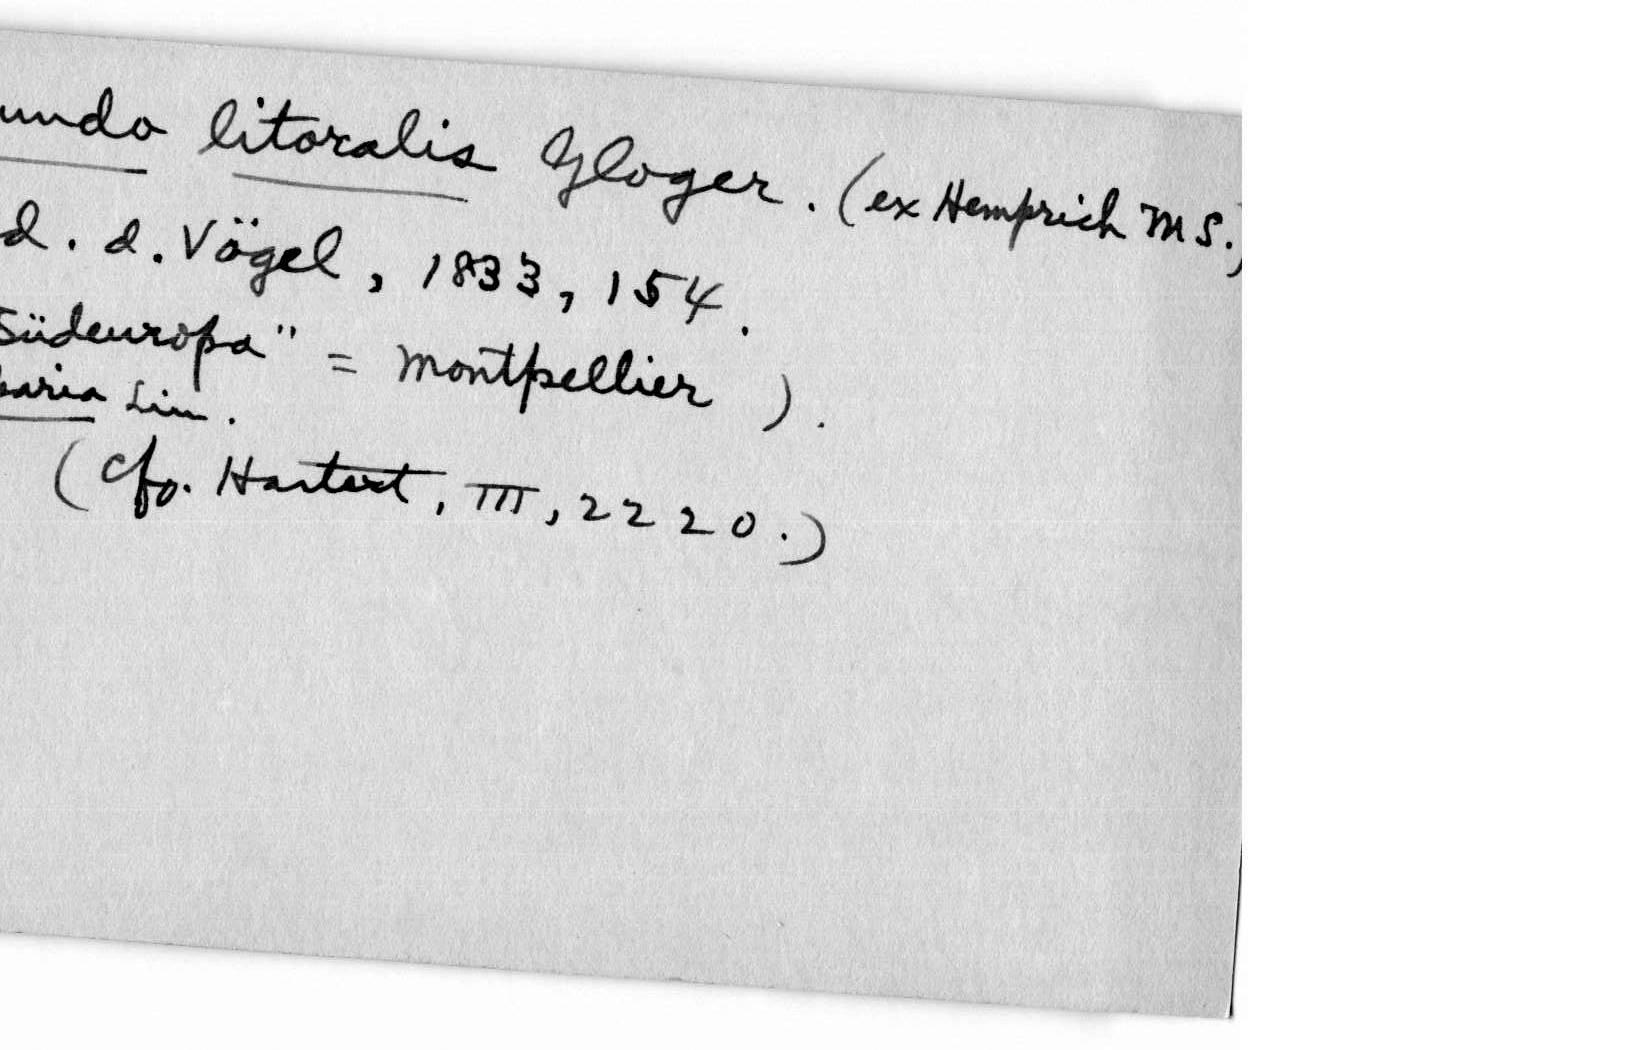 undo litoralis Gloger. (ex Hemprich MS.)
d. d. Vögel, 1833, 154.
Südeuropa" = Montpellier ).
paria Lin.
(Cfo. Hartert, III, 2220.)